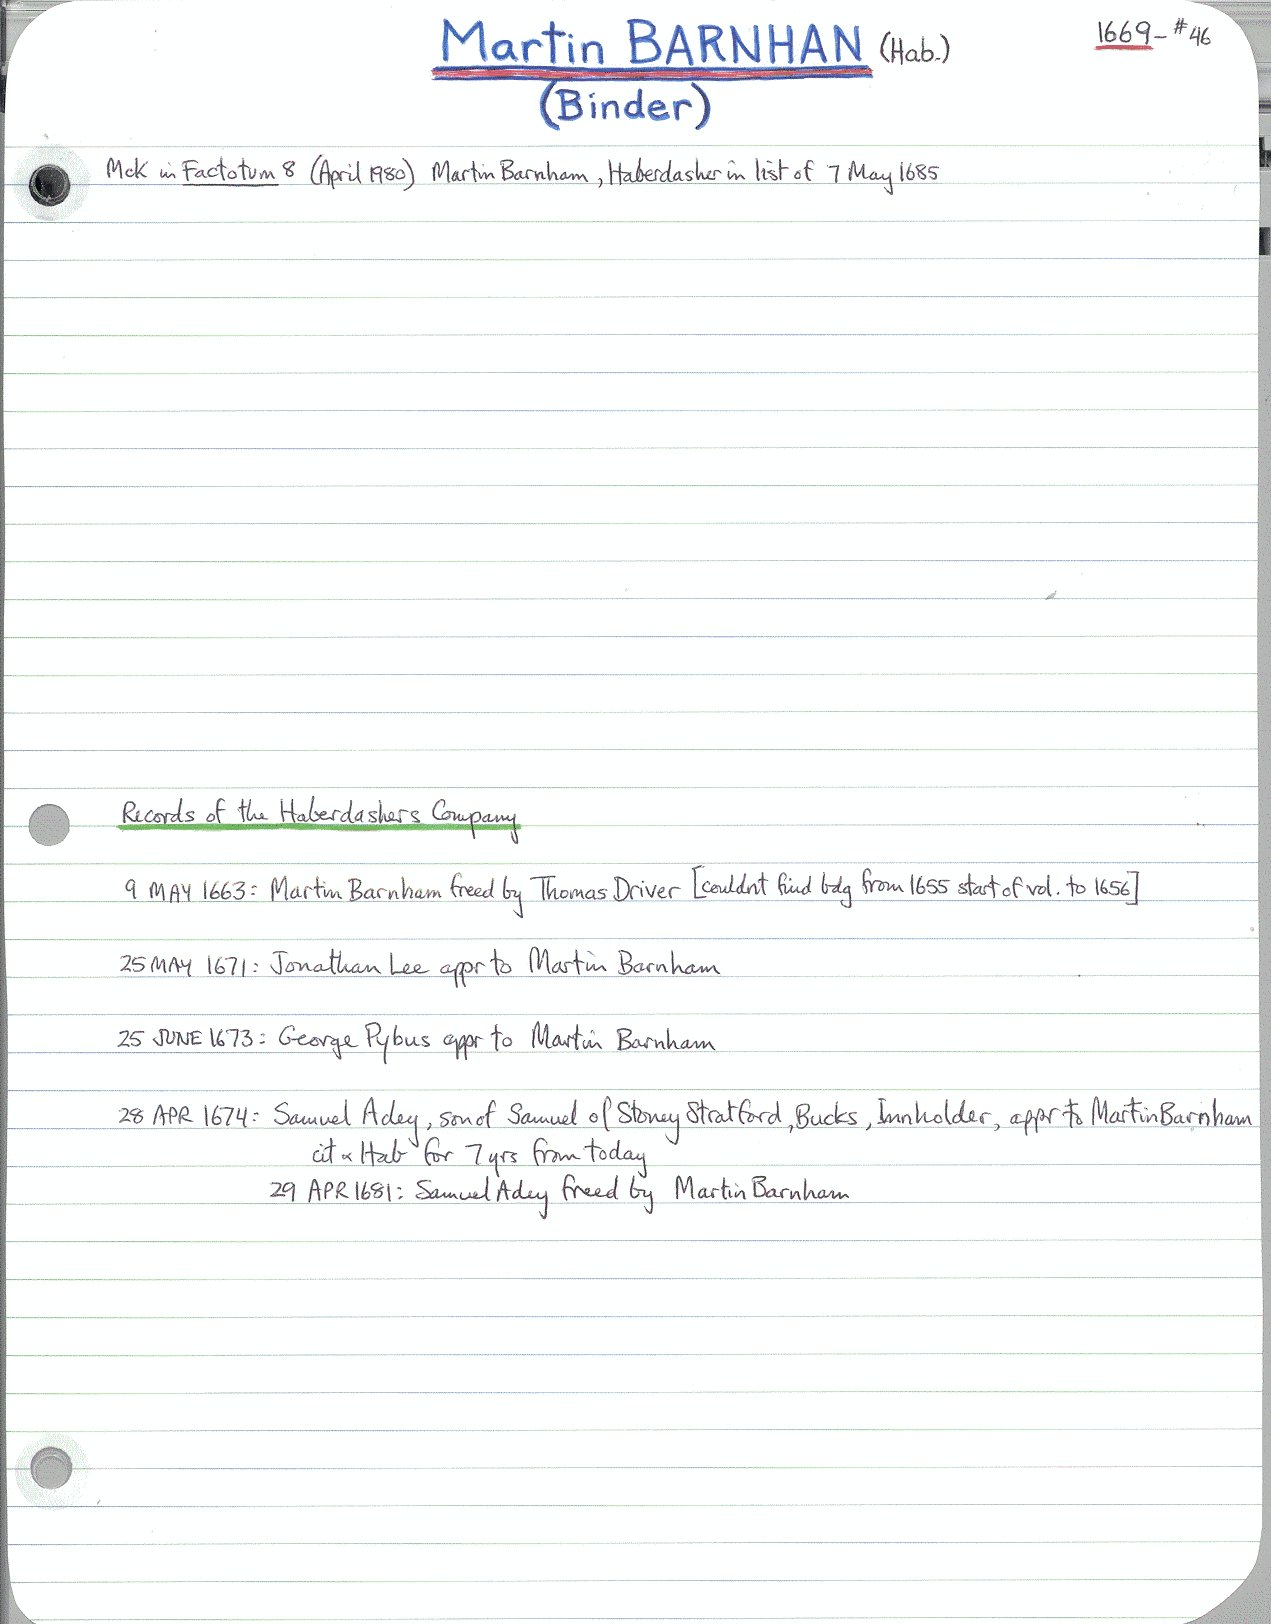 Martin BARNHAN (Hab.)
1669- #46
(Binder)
McK in Factotum 8 (April 1980) Martin Barnham, Haberdasher in list of 7 May 1685
Records of the Haberdashers Company
9 MAY 1663: Martin Barnham freed by Thomas Driver [couldnt find bdg from 1655 start of vol. to 1656]
25 MAY 1671: Jonathan Lee appr to Martin Barnham
25 JUNE 1673: George Pybus appr to Martin Barnham
28 APR 1674: Samuel Adey, son of Samuel of Stoney Stratford, Bucks, Innholder, appr to Martin Barnham
cit & Hab for 7 yrs from today
29 APR 1681: Samuel Adey freed by Martin Barnham